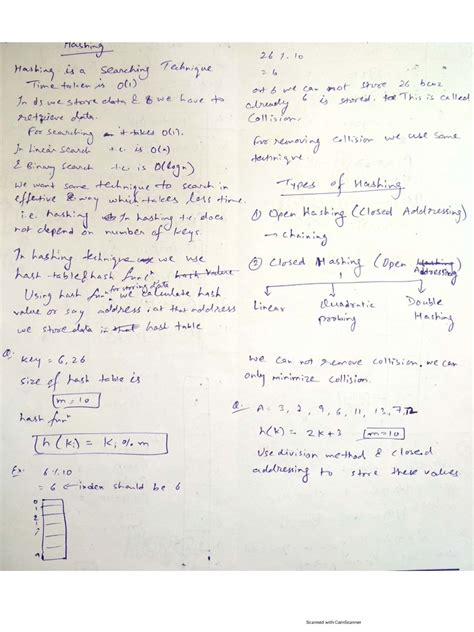 Hashing
Hashing is a Searching Technique
Time taken is O(1)
In ds we store data & we have to
retrieve data.
For searching it takes O(1).
In Linear search t.c. is O(n)
& Binary search t.c. is O(logn)
we want some technique to search in
effective way which takes less time.
i.e. hashing In hashing t.c. does
not depend on number of keys.
In hashing technique we use
hash table & hash funⁿ hash value
for storing data
Using hash funⁿ we calculate hash
value or say address & at that address
we store data in hash table
Q. key = 6, 26
size of hash table is
m = 10
hash funⁿ
h(ki) = ki % m
Ex: 6 % 10
= 6 ← index should be 6
0
1
2
9
26 % 10
= 6
at 6 we can not store 26 becz
already 6 is stored. This is called
Collision.
For removing collision we use some
technique.
Types of Hashing
① Open Hashing (Closed Addressing)
→ Chaining
② Closed Hashing (Open Hashing
Addressing)
Linear Quadratic Double
probing Hashing
We can not remove collision. we can
only minimize collision.
Q. A = 3, 2, 9, 6, 11, 13, 7, 12
h(k) = 2k+3 m=10
Use division method & closed
addressing to store these values
Scanned with CamScanner